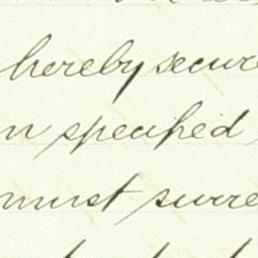 hereby secure
n specified
must surre